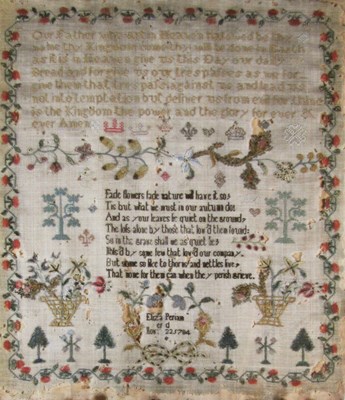 Our Father who art in Heaven hallowed be thy
name thy Kingdom come thy will be done on Earth
as it is in Heaven give us this Day our daily
Bread and forgive us our trespasses as we for
give them that trespass against us and lead us
not into temptation but deliver us from evil for thine
is the Kingdom the power and the glory for ever &
ever Amen
Fade flowers fade nature will have it so
Tis but what we must in our autumn do
And as your leaves lie quiet on the ground
The loss alone by those that lov'd them found
So in the grave shall we as quiet lie
Miss'd by some few that lov'd our company
But some so like to thorns and nettles live
That none for them can when they perish grieve
Eliza
Nov 22 1794